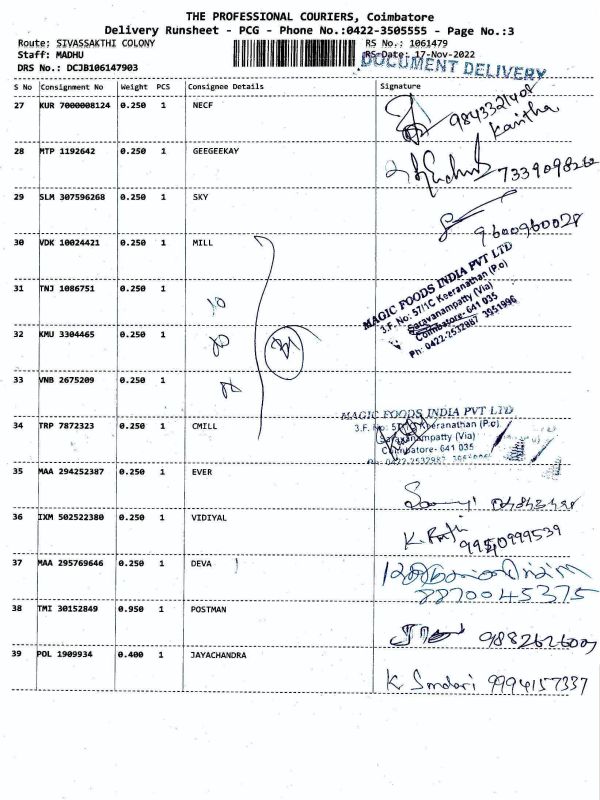 THE PROFESSIONAL COURIERS, Coimbatore
Delivery Runsheet - PCG - Phone No.:0422-3505555 - Page No.:3
Route: SIVASSAKTHI COLONY
Staff: MADHU
DRS No.: DCJB106147903
RS No.: 1061479
RS Date: 17-Nov-2022
DOCUMENT DELIVERY
S No Consignment No Weight PCS Consignee Details Signature
27 KUR 7000008124 0.250 1 NECF
9843321408
Kavitha
28 MTP 1192642 0.250 1 GEEGEEKAY
7339098262
29 SLM 307596268 0.250 1 SKY
9600960028
30 VDK 10024421 0.250 1 MILL
MAGIC FOODS INDIA PVT LTD
3.F. No: 57/1C Keeranathan (P.o)
Saravanampatty (Via)
Coimbatore- 641 035
Ph: 0422-2532987 3951996
31 TNJ 1086751 0.250 1
32 KMU 3304465 0.250 1
33 VNB 2675209 0.250 1
34 TRP 7872323 0.250 1 CMILL
MAGIC FOODS INDIA PVT LTD
3.F. No: 57/1C Keeranathan (P.o)
Saravanampatty (Via)
Coimbatore- 641 035
35 MAA 294252387 0.250 1 EVER
36 IXM 502522380 0.250 1 VIDIYAL
K. Rathi
37 MAA 295769646 0.250 1 DEVA
8870045375
38 TMI 30152849 0.950 1 POSTMAN
39 POL 1909934 0.400 1 JAYACHANDRA
K Sundari 9994157337